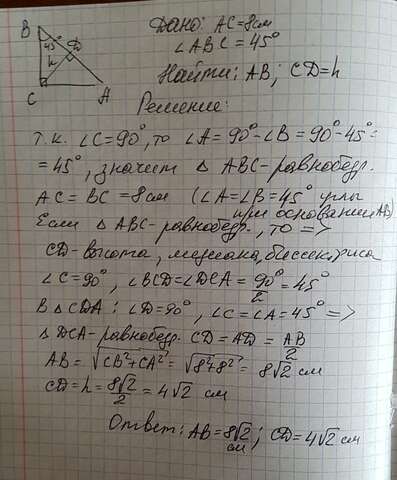 B
45°
D
h
C
A
Дано: AC = 8 см
∠ABC = 45°
Найти: AB; CD = h
Решение:
т.к. ∠C=90°, то ∠A = 90°-∠B = 90°-45° =
= 45°, значит △ ABC - равнобедр.
AC = BC = 8 см (∠A=∠B=45° углы
при основании AB)
Если △ ABC - равнобедр., то =>
CD - высота, медиана, биссектриса
∠C = 90°, ∠BCD = ∠DCA = 90°/2 = 45°
В △ CDA: ∠D = 90°, ∠C = ∠A = 45° =>
△ DCA - равнобедр. CD = AD = AB/2
AB = √CB²+CA² = √8²+8² = 8√2 см
CD = h = 8√2/2 = 4√2 см
Ответ: AB = 8√2 см; CD = 4√2 см